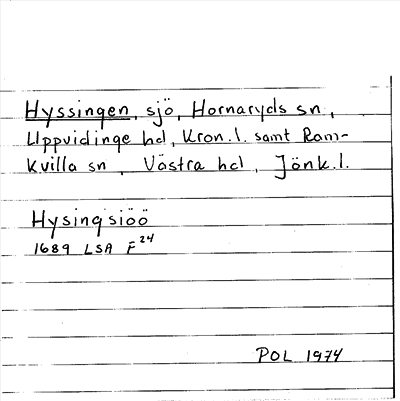 Hyssingen, sjö, Hornaryds sn,
Uppvidinge hd, Kron.l. samt Ram-
kvilla sn, Västra hd, Jönk.l.
Hysingsiöö
1689 LSA F24
POL 1974